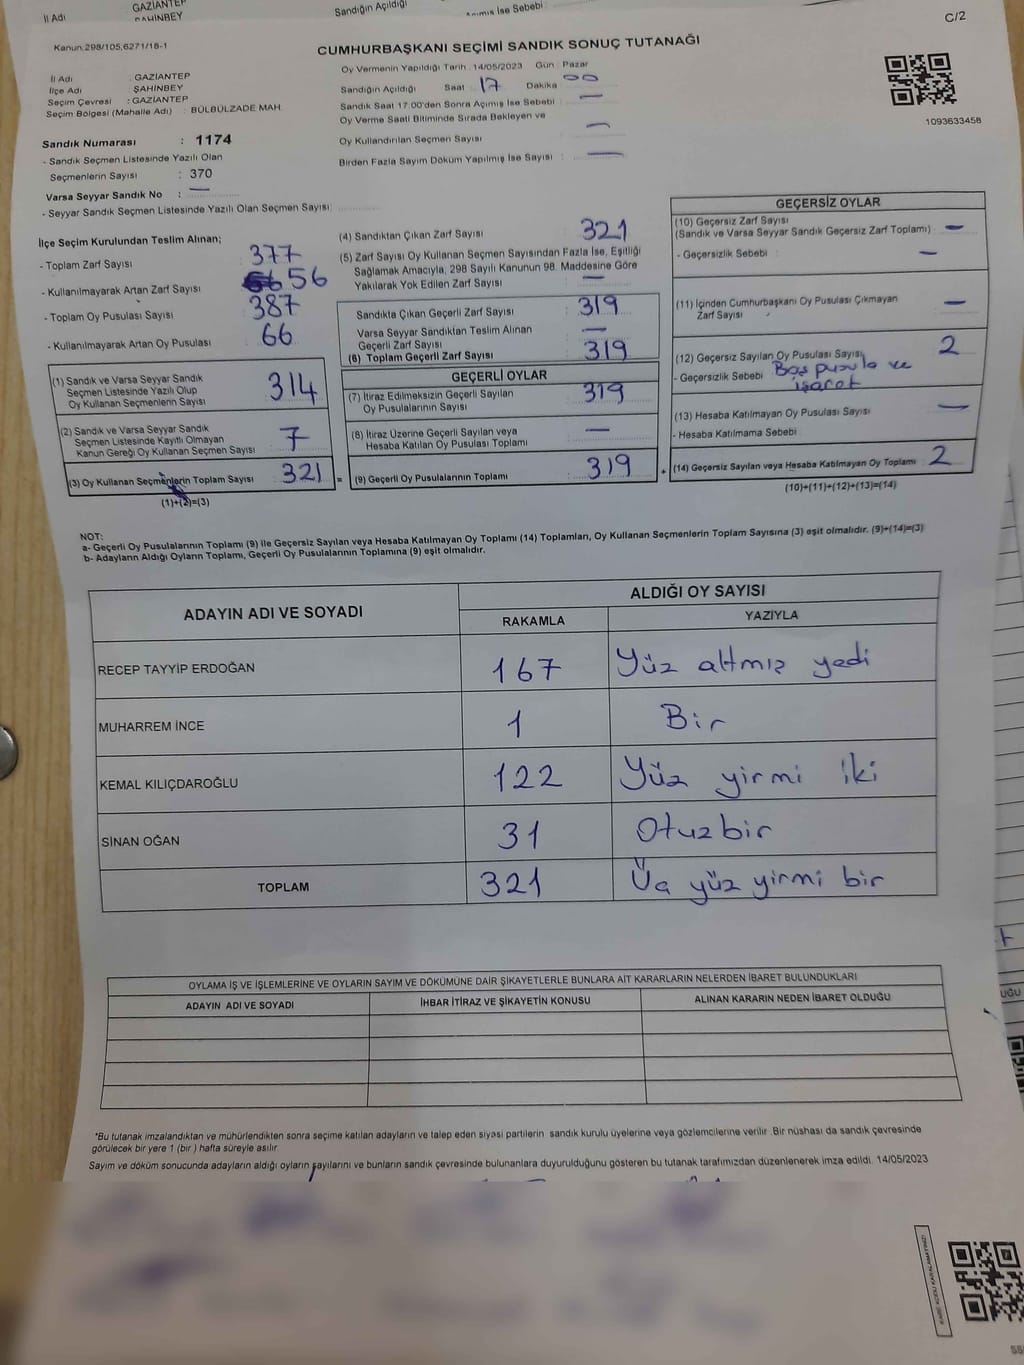 İl Adı
GAZİANTEP
ŞAHİNBEY
Sandığın Açıldığı
Açımış İse Sebebi
C/2
Kanun:298/105,6271/18-1
CUMHURBAŞKANI SEÇİMİ SANDIK SONUÇ TUTANAĞI
İl Adı : GAZİANTEP
İlçe Adı : ŞAHİNBEY
Seçim Çevresi : GAZİANTEP
Seçim Bölgesi (Mahalle Adı) : BÜLBÜLZADE MAH.
Sandık Numarası : 1174
- Sandık Seçmen Listesinde Yazılı Olan
Seçmenlerin Sayısı : 370
Varsa Seyyar Sandık No : —
- Seyyar Sandık Seçmen Listesinde Yazılı Olan Seçmen Sayısı:
Oy Vermenin Yapıldığı Tarih :14/05/2023 Gün : Pazar
Sandığın Açıldığı Saat 17 Dakika 00
Sandık Saat 17:00'den Sonra Açımış İse Sebebi : —
Oy Verme Saati Bitiminde Sırada Bekleyen ve
Oy Kullandırılan Seçmen Sayısı : —
Birden Fazla Sayım Döküm Yapılmış İse Sayısı : —
1093633458
İlçe Seçim Kurulundan Teslim Alınan;
- Toplam Zarf Sayısı : 377
- Kullanılmayarak Artan Zarf Sayısı : 56
- Toplam Oy Pusulası Sayısı : 387
- Kullanılmayarak Artan Oy Pusulası : 66
(1) Sandık ve Varsa Seyyar Sandık
Seçmen Listesinde Yazılı Olup
Oy Kullanan Seçmenlerin Sayısı : 314
(2) Sandık ve Varsa Seyyar Sandık
Seçmen Listesinde Kayıtlı Olmayan
Kanun Gereği Oy Kullanan Seçmen Sayısı : 7
(3) Oy Kullanan Seçmenlerin Toplam Sayısı : 321
(1)+(2)=(3)
(4) Sandıktan Çıkan Zarf Sayısı : 321
(5) Zarf Sayısı Oy Kullanan Seçmen Sayısından Fazla İse, Eşitliği
Sağlamak Amacıyla, 298 Sayılı Kanunun 98. Maddesine Göre
Yakılarak Yok Edilen Zarf Sayısı : —
Sandıkta Çıkan Geçerli Zarf Sayısı : 319
Varsa Seyyar Sandıktan Teslim Alınan
Geçerli Zarf Sayısı : —
(6) Toplam Geçerli Zarf Sayısı : 319
GEÇERLİ OYLAR
(7) İtiraz Edilmeksizin Geçerli Sayılan
Oy Pusulalarının Sayısı : 319
(8) İtiraz Üzerine Geçerli Sayılan veya
Hesaba Katılan Oy Pusulası Toplamı : —
= (9) Geçerli Oy Pusulalarının Toplamı : 319 +
GEÇERSİZ OYLAR
(10) Geçersiz Zarf Sayısı
(Sandık ve Varsa Seyyar Sandık Geçersiz Zarf Toplamı) : —
- Geçersizlik Sebebi : —
(11) İçinden Cumhurbaşkanı Oy Pusulası Çıkmayan
Zarf Sayısı : —
(12) Geçersiz Sayılan Oy Pusulası Sayısı : 2
- Geçersizlik Sebebi : Boş pusula ve
işaret
(13) Hesaba Katılmayan Oy Pusulası Sayısı : —
- Hesaba Katılmama Sebebi
(14) Geçersiz Sayılan veya Hesaba Katılmayan Oy Toplamı : 2
(10)+(11)+(12)+(13)=(14)
NOT:
a- Geçerli Oy Pusulalarının Toplamı (9) ile Geçersiz Sayılan veya Hesaba Katılmayan Oy Toplamı (14) Toplamları, Oy Kullanan Seçmenlerin Toplam Sayısına (3) eşit olmalıdır. (9)+(14)=(3)
b- Adayların Aldığı Oyların Toplamı, Geçerli Oy Pusulalarının Toplamına (9) eşit olmalıdır.
ADAYIN ADI VE SOYADI
ALDIĞI OY SAYISI
RAKAMLA YAZIYLA
RECEP TAYYİP ERDOĞAN 167 Yüz altmış yedi
MUHARREM İNCE 1 Bir
KEMAL KILIÇDAROĞLU 122 Yüz yirmi iki
SİNAN OĞAN 31 Otuzbir
TOPLAM 321 Üç yüz yirmi bir
OYLAMA İŞ VE İŞLEMLERİNE VE OYLARIN SAYIM VE DÖKÜMÜNE DAİR ŞİKAYETLERLE BUNLARA AİT KARARLARIN NELERDEN İBARET BULUNDUKLARI
ADAYIN ADI VE SOYADI İHBAR İTİRAZ VE ŞİKAYETİN KONUSU ALINAN KARARIN NEDEN İBARET OLDUĞU
*Bu tutanak imzalandıktan ve mühürlendikten sonra seçime katılan adayların ve talep eden siyasi partilerin sandık kurulu üyelerine veya gözlemcilerine verilir. Bir nüshası da sandık çevresinde
görülecek bir yere 1 (bir) hafta süreyle asılır.
Sayım ve döküm sonucunda adayların aldığı oyların sayılarını ve bunların sandık çevresinde bulunanlara duyurulduğunu gösteren bu tutanak tarafımızdan düzenlenerek imza edildi. 14/05/2023